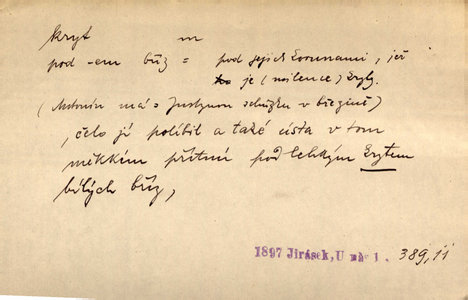 kryt m
pod -em bříz = pod jejich korunami, jež
je (milence) kryly.
(Antonín má s Justynou schůzku v březině)
, čelo jí políbil a také ústa v tom
měkkém přítmí pod lehkým krytem
bílých bříz,
1897 Jirásek, U nás 1. 389, ii